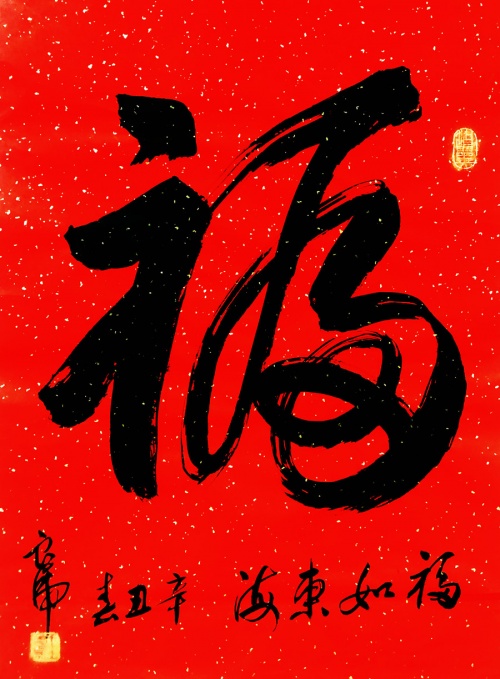 福
福如東海
辛丑春